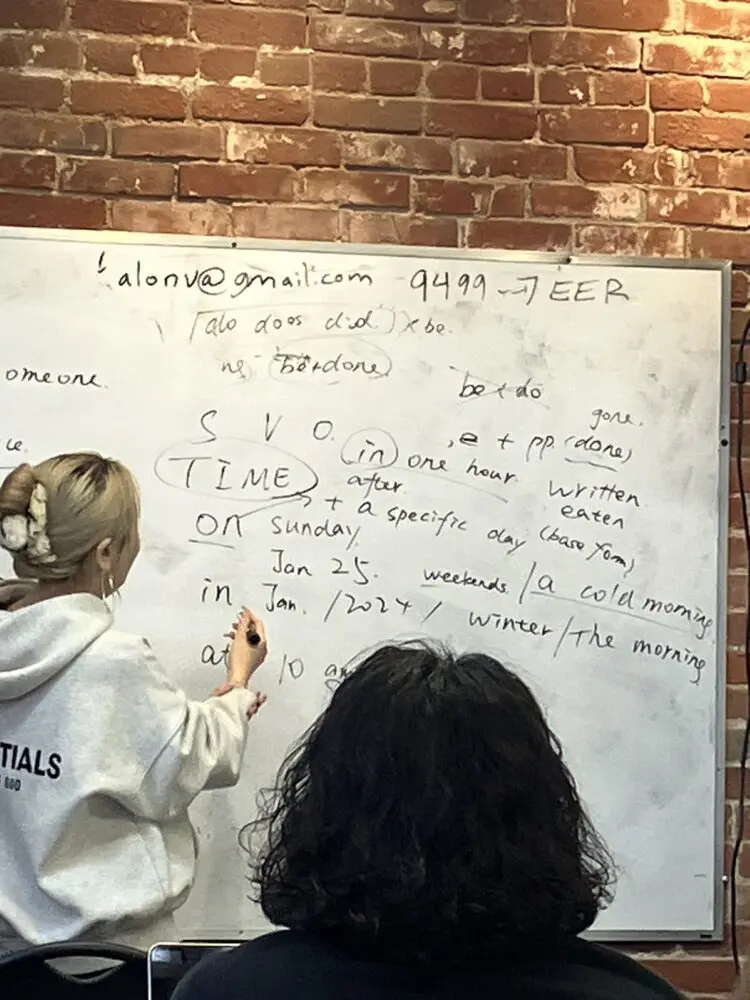 ! alonv@gmail.com 9499 → TEER
do does did. × be.
omeone. ng be+done
be + do
gone.
ue. S V O. , e + pp. (done)
TIME in one hour. written
after eaten
on Sunday + a specific day (base form)
Jan 25. weekends / a cold morning
in Jan. / 2024 / winter / The morning
at 10 am
TIALS
GOD